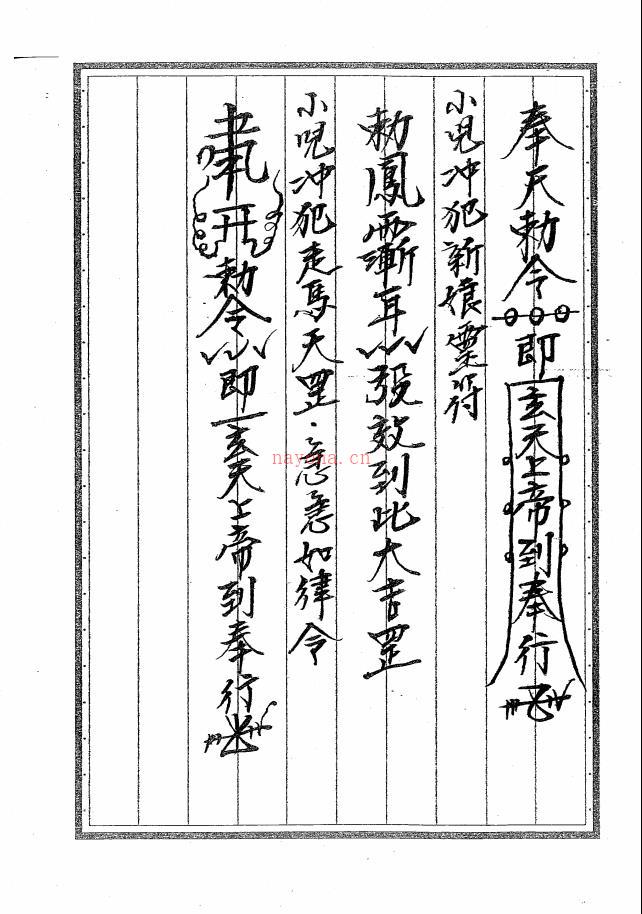 奉天勅令即玄天上帝到奉行
小兒冲犯新娘 符
勅鳳 斬耳 發效到此大吉罡
小呪冲犯走馬天罡·急急如律令
勅令 即玄天上帝到奉行
nayona.cn